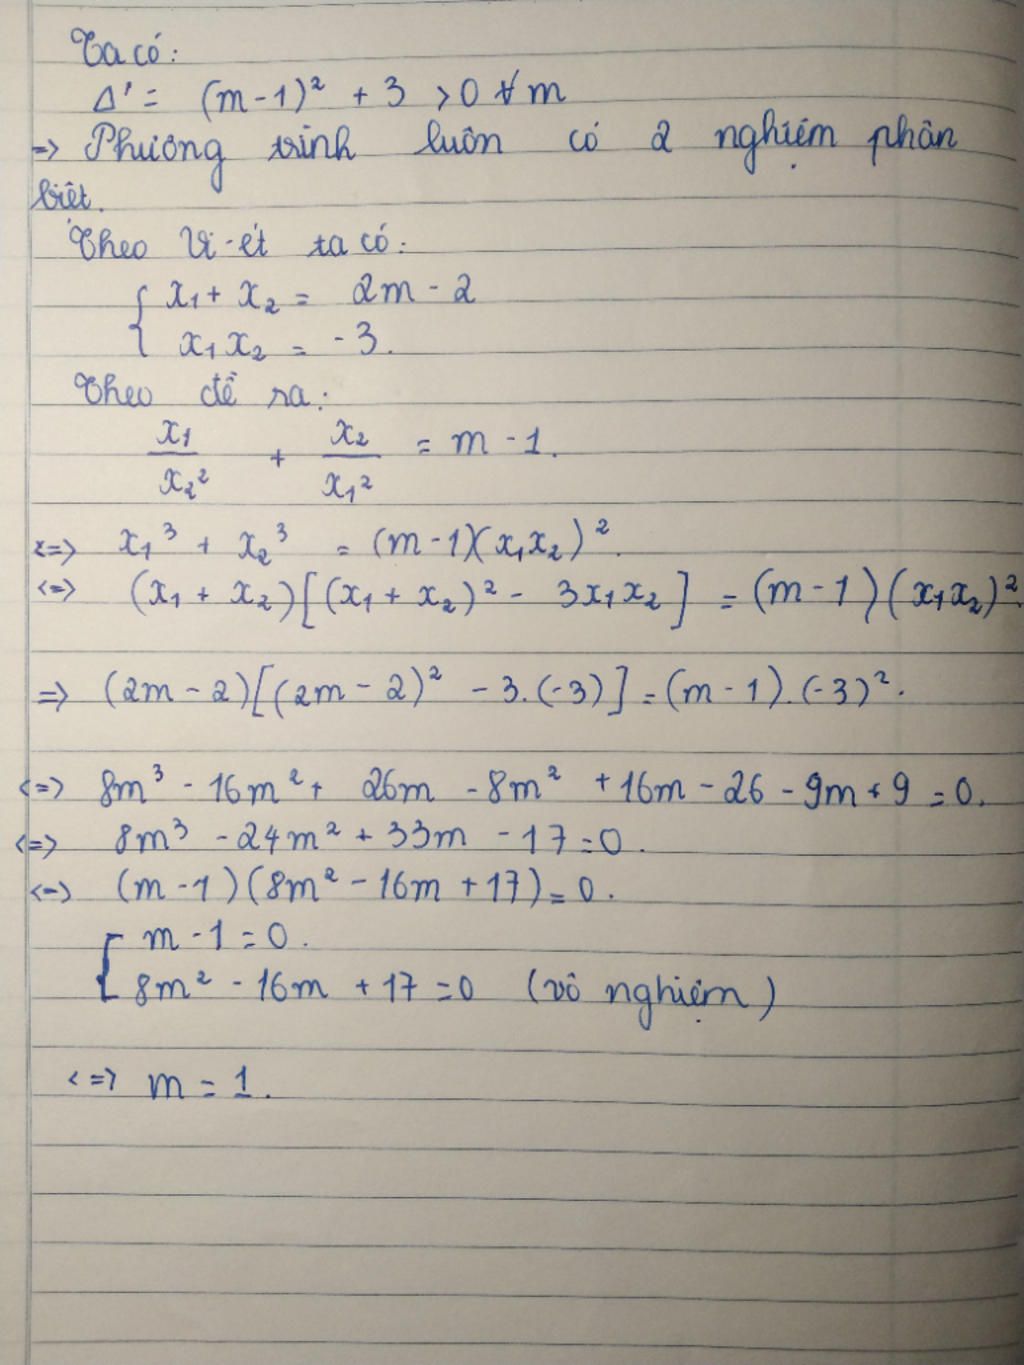 Ta có:
Δ' = (m - 1)² + 3 > 0 ∀ m
=> Phương trình luôn có 2 nghiệm phân
biệt.
Theo Vi-ét ta có:
{ x₁ + x₂ = 2m - 2
x₁x₂ = -3.
Theo đề ra:
x₁/x₂² + x₂/x₁² = m - 1.
<=> x₁³ + x₂³ = (m - 1)(x₁x₂)².
<=> (x₁ + x₂)[(x₁ + x₂)² - 3x₁x₂] = (m - 1)(x₁x₂)².
=> (2m - 2)[(2m - 2)² - 3.(-3)] = (m - 1).(-3)².
<=> 8m³ - 16m² + 26m - 8m² + 16m - 26 - 9m + 9 = 0.
<=> 8m³ - 24m² + 33m - 17 = 0.
<=> (m - 1)(8m² - 16m + 17) = 0.
[ m - 1 = 0.
8m² - 16m + 17 = 0 (vô nghiệm)
<=> m = 1.